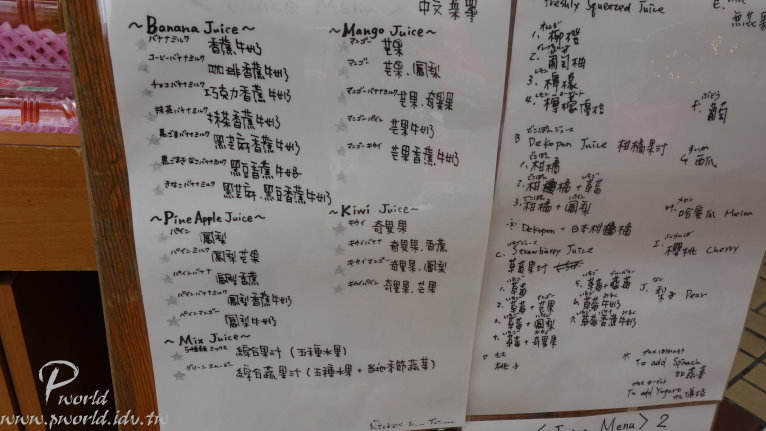 中文菜單
~Banana Juice~
バナナミルク 香蕉牛奶
コーヒーバナナミルク 咖啡香蕉牛奶
チョコバナナミルク 巧克力香蕉牛奶
抹茶バナナミルク 抹茶香蕉牛奶
黒ごまバナナミルク 黑芝麻香蕉牛奶
黒ごまきなこバナナミルク 黑豆香蕉牛奶
きなこバナナミルク 黑芝麻.黑豆香蕉牛奶
~Pine Apple Juice~
パイン 鳳梨
パインミルク 鳳梨芒果
パインバナナ 鳳梨香蕉
パインバナナミルク 鳳梨香蕉牛奶
パインマンゴー 鳳梨牛奶
~Mix Juice~
ミックス 綜合果汁(五種水果)
グリーンスムージー 綜合蔬果汁(五種水果+当地季節蔬菜)
~Mango Juice~
マンゴー 芒果
マンゴー 芒果.鳳梨
マンゴーバナナミルク 芒果.奇異果
マンゴーパイン 芒果牛奶
マンゴーキウイ 芒果香蕉牛奶
~Kiwi Juice~
キウイ 奇異果
キウイバナナ 奇異果.香蕉
キウイマンゴー 奇異果.鳳梨
キウイパイン 奇異果.芒果
Freshly Squeezed Juice
オレンジ
1. 柳橙
グレープフルーツ
2. 葡萄柚
レモン
3. 檸檬
4. 檸檬優格
B Dekopon Juice 柑橘果汁
1. 柑橘
2. 柑橘+草莓
3. 柑橘+鳳梨
※Dekopon=日本柑橘
C. Strawberry Juice
草莓果汁
1. 草莓
2. 草莓+芒果
3. 草莓+鳳梨
4. 草莓+奇異果
5. 草莓+藍莓
6. 草莓牛奶
7. 草莓香蕉牛奶
もも
桃子
E.
無花果
ぶどう
F. 葡萄
すいか
G 西瓜
メロン
H. 哈蜜瓜 Melon
さくらんぼ
I. 櫻桃 Cherry
J. 梨子 Pear
※ To add Spinach
加蔬菜
To add Yogurt 加優格
Menu > 2
P world
www.pworld.idv.tw